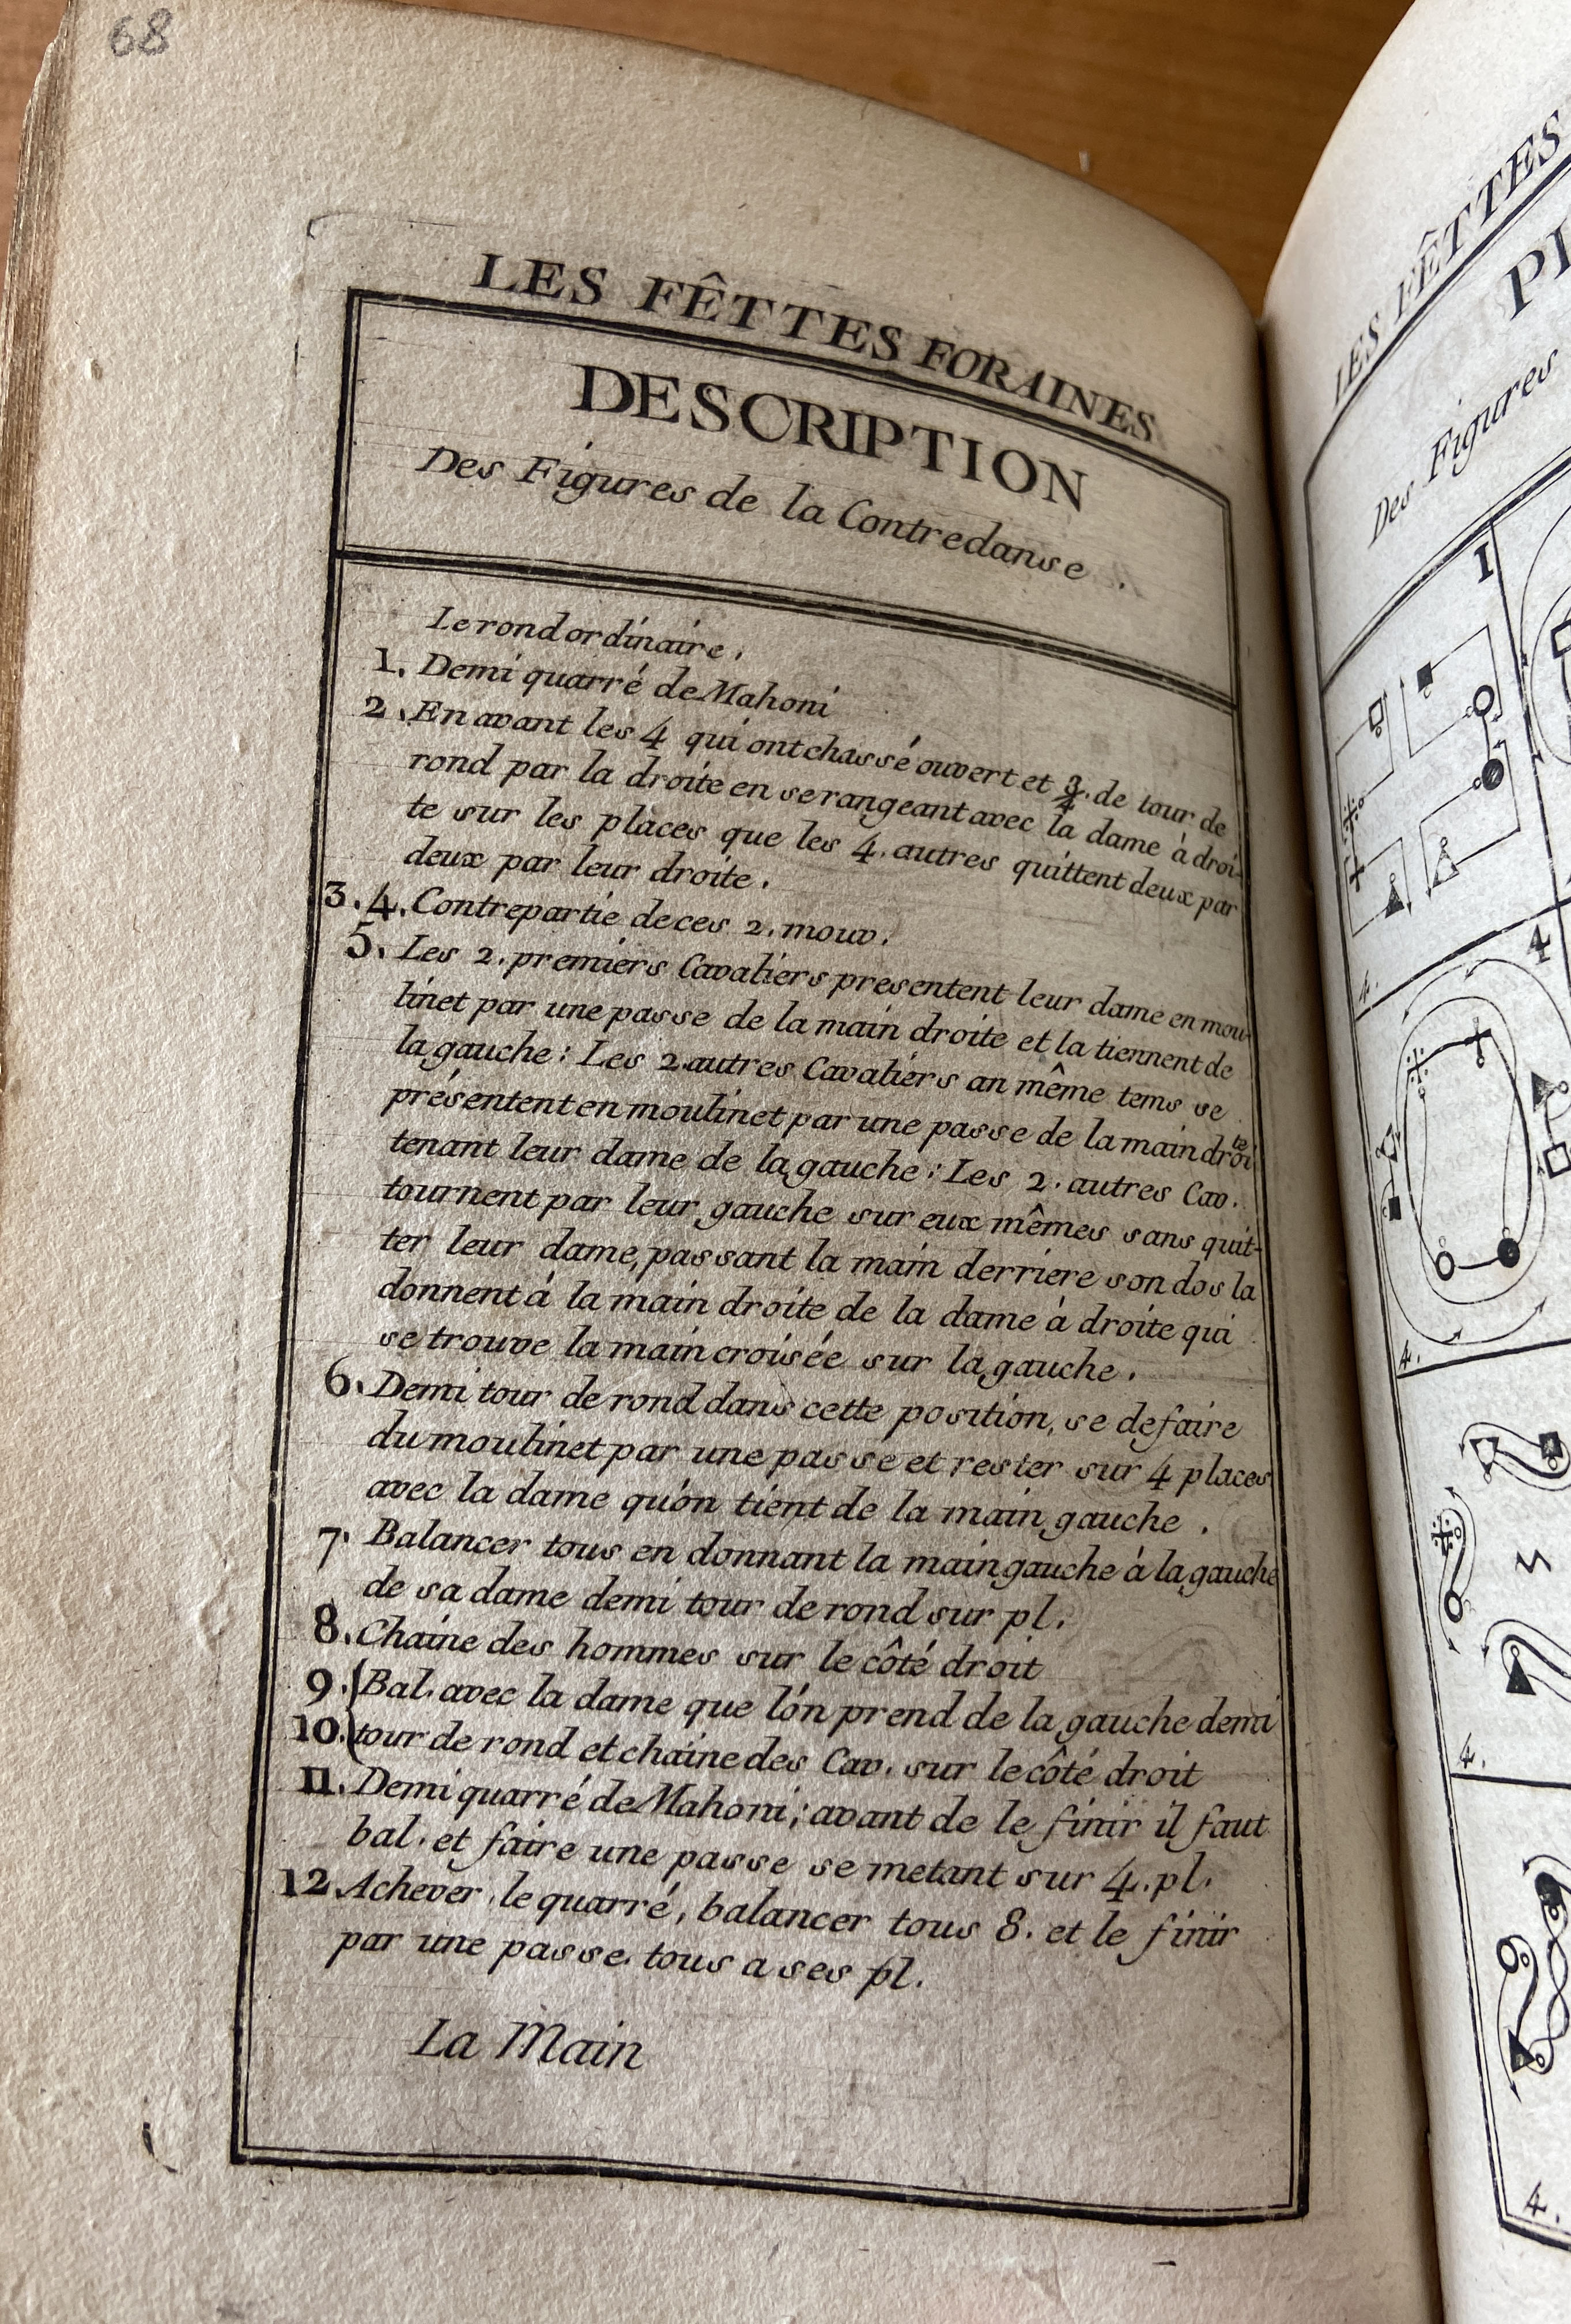 68
LES FÊTTES FORAINES
DESCRIPTION
Des Figures de la Contredanse.
Le rond ordinaire.
1. Demi quarré de Mahoni
2. En avant les 4 qui ont chassé ouvert et 3/4. de tour de
rond par la droite en se rangeant avec la dame à droi-
te sur les places que les 4. autres quittent deux par
deux par leur droite.
3. 4. Contrepartie de ces 2. mouv.
5. Les 2. premiers Cavaliers presentent leur dame en mou-
linet par une passe de la main droite et la tiennent de
la gauche : Les 2. autres Cavaliers an même tems se
présentent en moulinet par une passe de la main droite
tenant leur dame de la gauche : Les 2. autres Cav.
tournent par leur gauche sur eux mêmes sans quit-
ter leur dame, passant la main derriere son dos la
donnent à la main droite de la dame à droite qui
se trouve la main croisée sur la gauche.
6. Demi tour de rond dans cette position, se defaire
du moulinet par une passe et rester sur 4 places
avec la dame qu'on tient de la main gauche.
7. Balancer tous en donnant la main gauche à la gauche
de sa dame demi tour de rond sur pl.
8. Chaine des hommes sur le côté droit
9. (Bal. avec la dame que l'on prend de la gauche demi
10. (tour de rond et chaine des Cav. sur le côté droit
11. Demi quarré de Mahoni ; avant de le finir il faut
bal. et faire une passe se metant sur 4. pl.
12 Achever le quarré, balancer tous 8. et le finir
par une passe. tous a ses pl.
La Main
LES FÊTTES
Des Figures
1
4.
4
4.
4.
4.